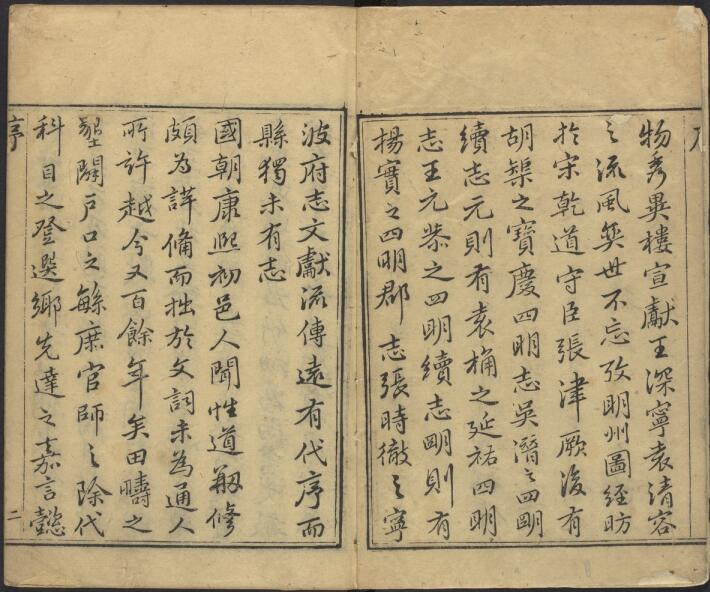 物秀異樓宣獻王深寧袁清容
之流風奕世不忘攷明州圖經昉
於宋乾道守臣張津厥後有
胡榘之寶慶四明志吳潛之四明
續志元則有袁桷之延祐四明
志王元恭之四明續志明則有
楊實之四明郡志張時徹之寧
波府志文獻流傳遠有代序而
縣獨未有志
國朝康熙初邑人聞性道剏修
頗為詳備而拙於文詞未為通人
所許越今又百餘年矣田疇之
墾闢戶口之緐庶官師之除代
科目之登選鄉先達之嘉言懿
序
二